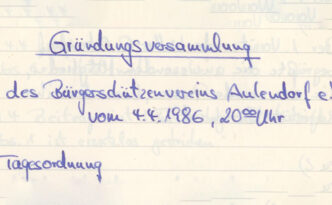 Gründungsversammlung
des Bürgerschützenvereins Aulendorf e.V
vom 4.4.1986, 20⁰⁰ Uhr
Tagesordnung